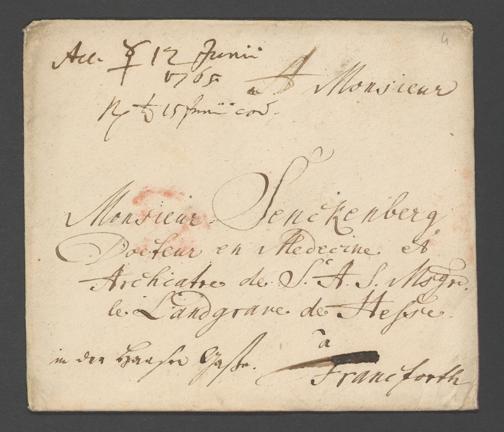 Acc. ☿ 12 Junii
1765.
A Monsieur
♄ 15 Junii eod.
Monsieur Senckenberg
Docteur en Medecine et
Archiatre de S. A. S. Msgr.
le Landgrave de Hesse.
à
in der Haasen Gasse.
Francforth
4